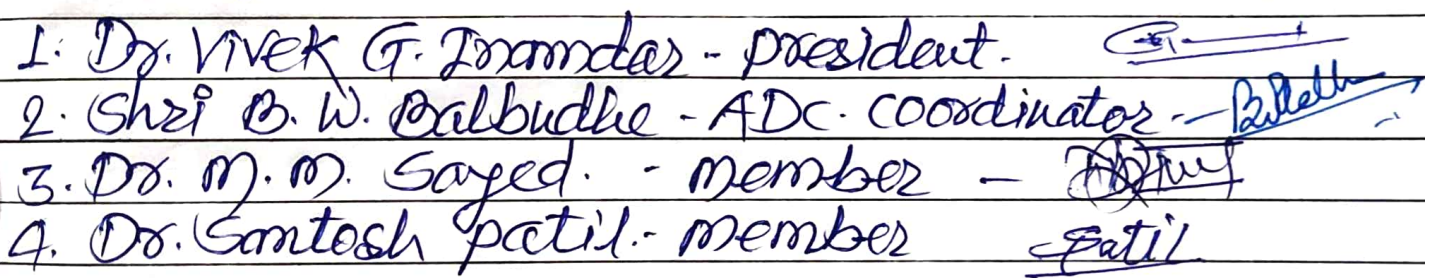 1. Dr. Vivek G. Inamdar - President.
2. Shri B. W. Balbudhe - ADC. Coordinator -
3. Dr. M. M. Sayed. - member -
4. Dr. Santosh patil. - member Patil